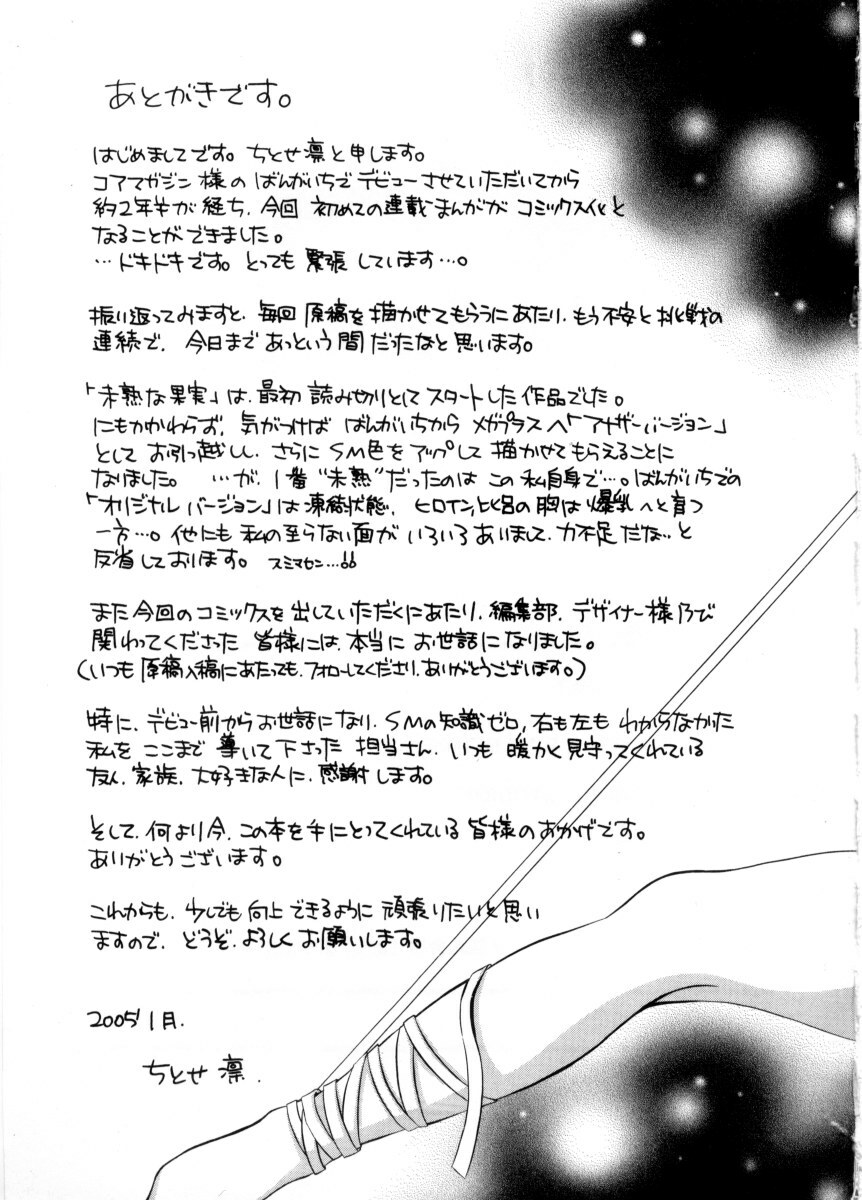 あとがきです。
はじめましてです。ちとせ凛と申します。
コアマガジン様のばんがいちでデビューさせていただいてから
約2年半が経ち、今回初めての連載まんががコミックス化と
なることができました。
…ドキドキです。とっても緊張しています…。
振り返ってみますと、毎回原稿を描かせてもらうにあたり、もう不安と挑戦の
連続で、今日まであっという間だったなと思います。
「未熟な果実」は、最初読み切りとしてスタートした作品でした。
にもかかわらず、気がつけばばんがいちからメガプラスへ「アナザーバージョン」
としてお引っ越しし、さらにSM色をアップして描かせてもらえることに
なりました。…が、1番“未熟”だったのはこの私自身で…。ばんがいちでの
「オリジナルバージョン」は凍結状態、ヒロイン比呂の胸は爆乳へと育つ
一方…。他にも私の至らない面がいろいろありまして、力不足だな…と
反省しております。スミマセン…
また今回のコミックスを出していただくにあたり、編集部、デザイナー様及び
関わってくださった皆様には、本当にお世話になりました。
(いつも原稿入稿にあたっても、フォローしてくださり、ありがとうございます。)
特に、デビュー前からお世話になり、SMの知識ゼロ、右も左もわからなかった
私をここまで導いて下さった担当さん、いつも暖かく見守ってくれている
友人、家族、大好きな人に、感謝します。
そして、何より今、この本を手にとってくれている皆様のおかげです。
ありがとうございます。
これからも、少しでも向上できるように頑張りたいと思い
ますので、どうぞ、よろしくお願いします。
2005 1月.
ちとせ 凛.